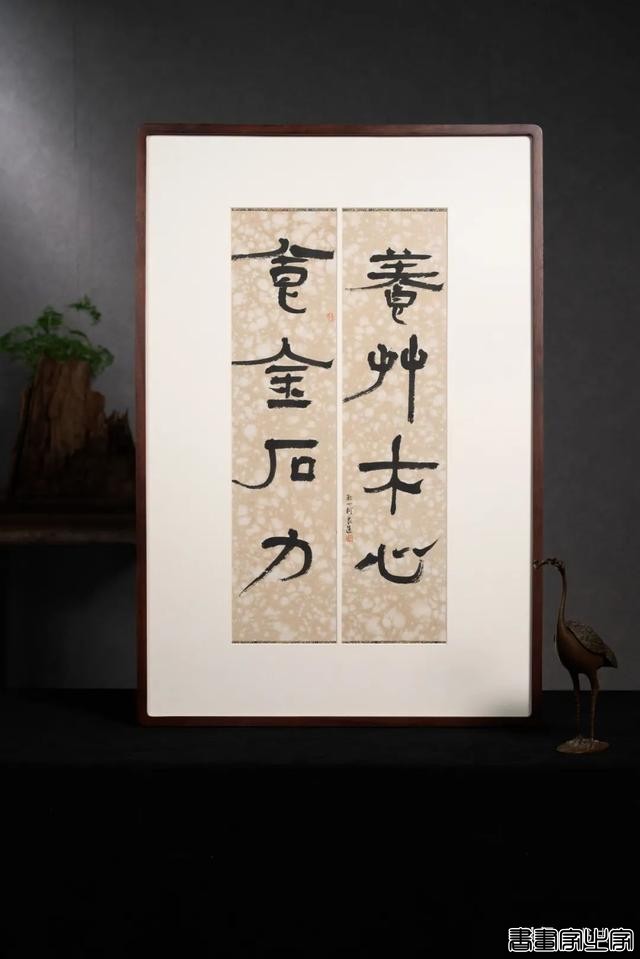 養艸木心
食金石力
書畫家之家